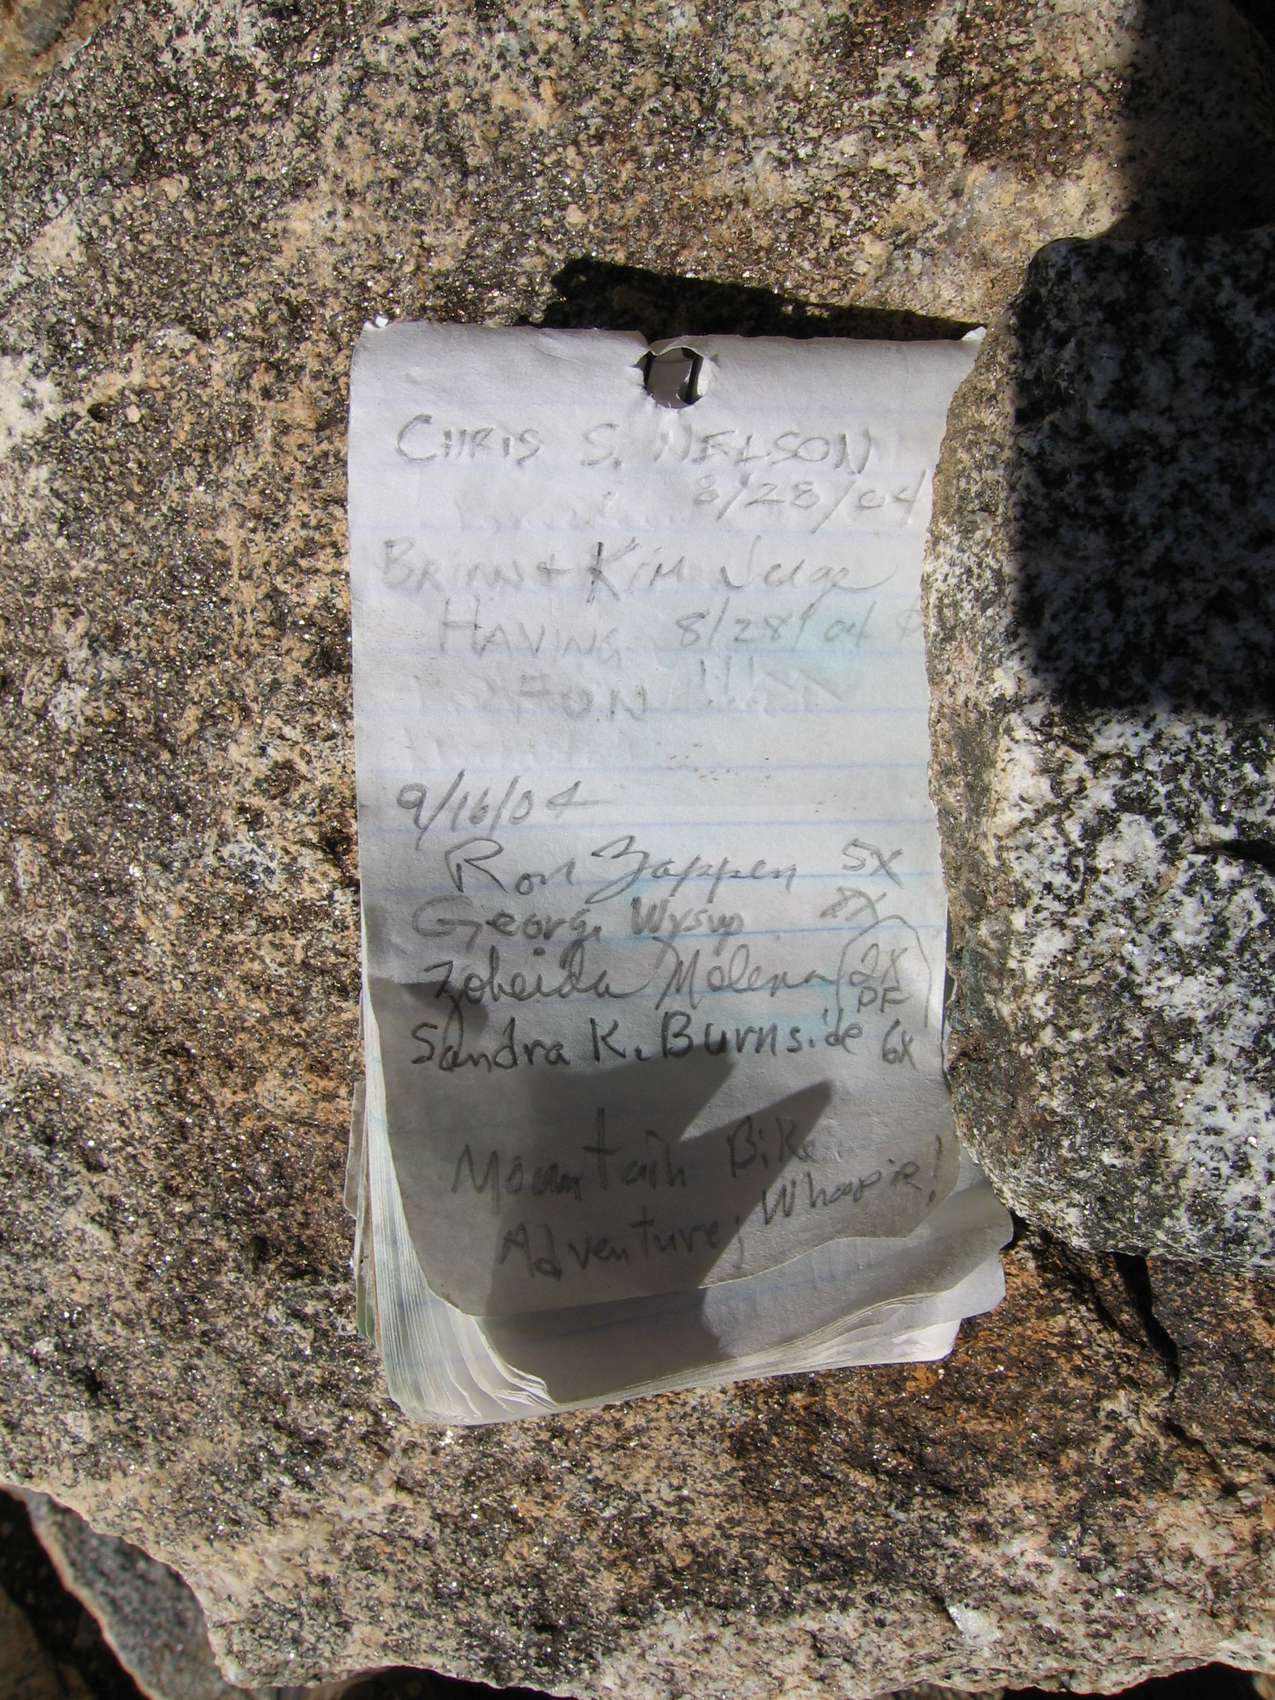 CHRIS S. NELSON
8/28/04
BRIAN + KIM Juge
HAVING 8/28/04
FUN !!!
9/16/04
Ron Zappen 5X
George Wysup 7X
Zobeida Molena (2X
PF)
Sandra K. Burnside 6X
Mountain Bike
Adventure, Whoopie!